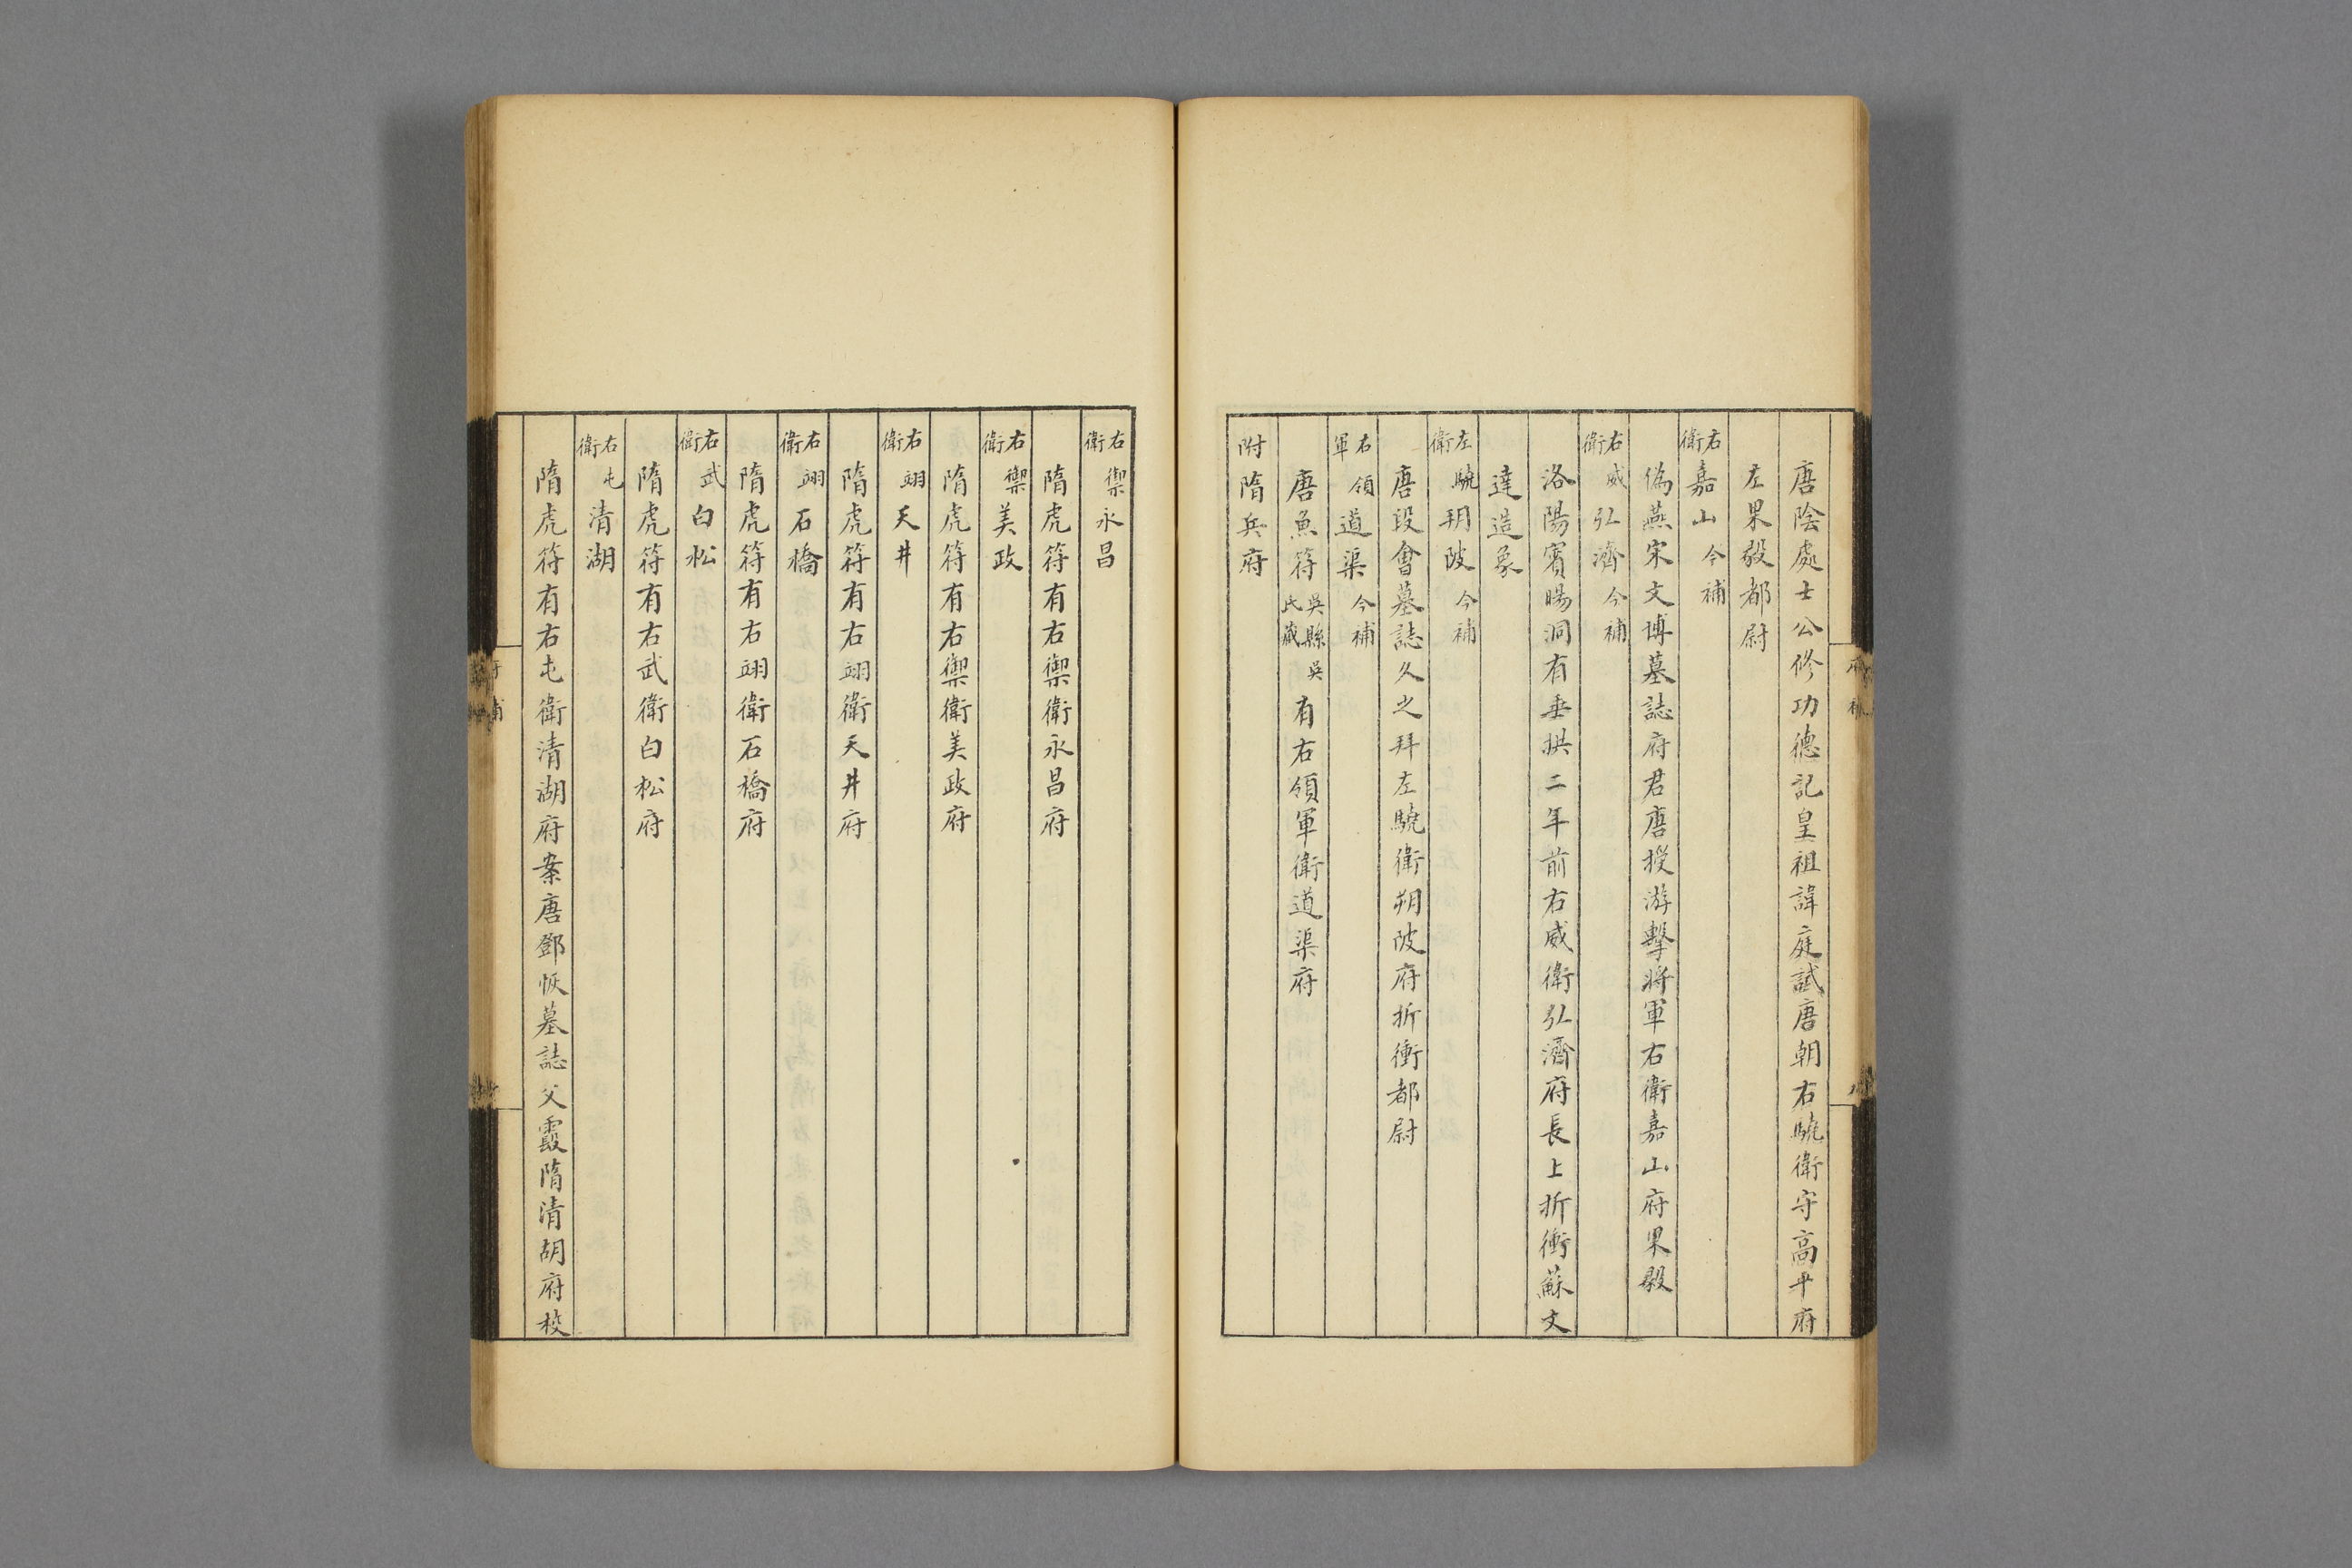 唐陰處士公修功德記皇祖諱庭試唐朝右驍衛守高平府
左果毅都尉
右衛嘉山今補
偽燕宋文博墓誌府君唐授游擊將軍右衛嘉山府果毅
右威衛弘濟今補
洛陽賓暘洞有垂拱二年前右威衛弘濟府長上折衝蘇文
達造象
左驍衛朔陂今補
唐段會墓誌久之拜左驍衛朔陂府折衝都尉
右領軍道渠今補
唐魚符吳縣吳氏藏有右領軍衛道渠府
附隋兵府
右禦衛永昌
隋虎符有右禦衛永昌府
右禦衛美政
隋虎符有右禦衛美政府
右翊衛天井
隋虎符有右翊衛天井府
右翊衛石橋
隋虎符有右翊衛石橋府
右武衛白松
隋虎符有右武衛白松府
右屯衛清湖
隋虎符有右屯衛清湖府案唐鄧恢墓誌父霞隋清胡府校